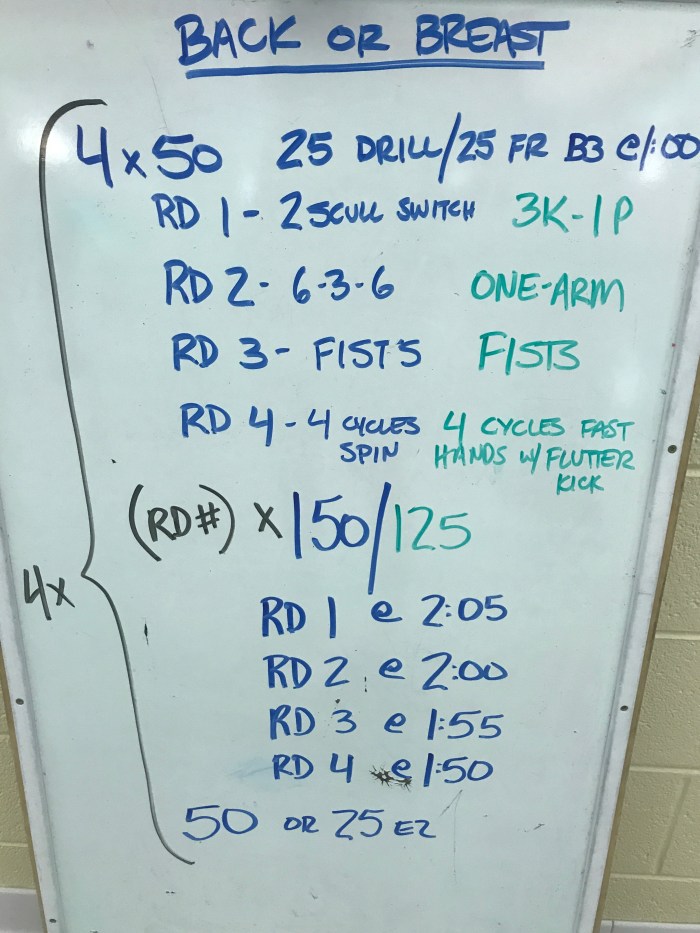 BACK OR BREAST
4 x 50 25 DRILL/25 FR B3 @1:00
RD 1 - 2 SCULL SWITCH 3K-1P
RD 2 - 6-3-6 ONE-ARM
RD 3 - FISTS FISTS
RD 4 - 4 CYCLES SPIN 4 CYCLES FAST
HANDS w/ FLUTTER
KICK
(RD#) x 150/125
4x
RD 1 @ 2:05
RD 2 @ 2:00
RD 3 @ 1:55
RD 4 @ 1:50
50 OR 25 EZ